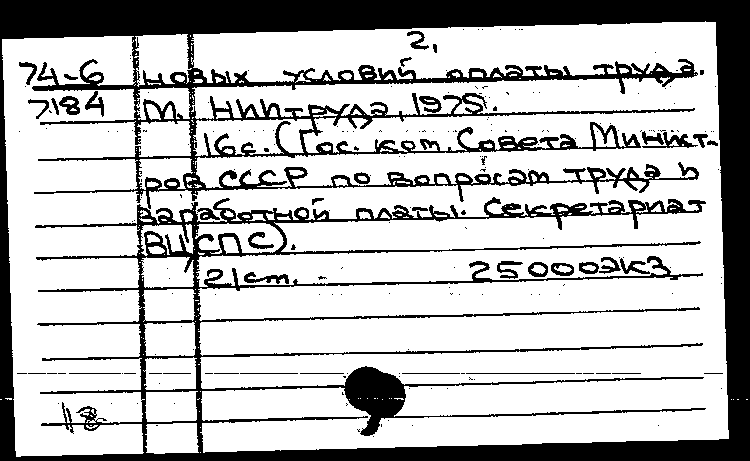 2.
74-6 новых условий оплаты труда.
7184 М. НИИтруда, 1975.
16с. (Гос. ком. Совета Минист-
ров СССР по вопросам труда и
заработной платы. Секретариат
ВЦСПС).
21 ст. 250002кз
118